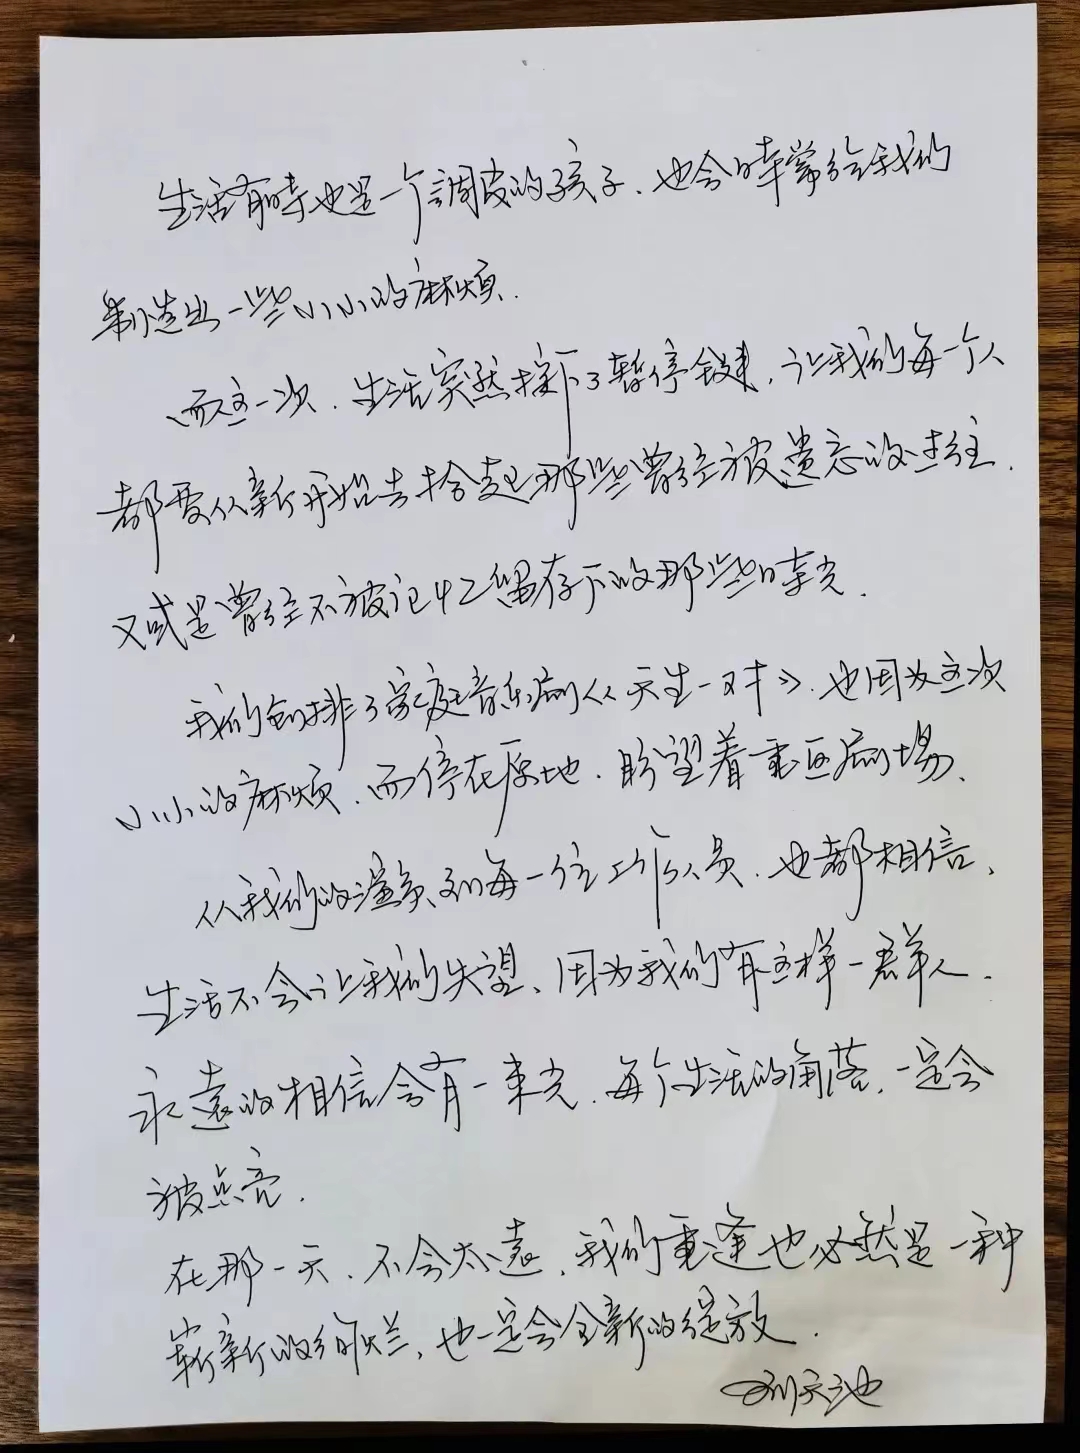 生活有時也是一个調皮的孩子、也会時常给我们
制造出一些小小的麻烦.
而这一次、生活突然按下了暂停键,让我们每一个人
都要从新开始去拾起那些曾经被遗忘的过往.
又或是曾经不被记忆留存下的那些時光.
我们创排了家庭音乐剧《天生一对》、也因为这次
小小的麻烦、而停在原地、盼望着重返剧場、
从我们的演员到每一位工作人员、也都相信、
生活不会让我们失望、因为我们有这样一群人.
永遠的相信会有一束光、每个生活的角落,一定会
被点亮.
在那一天、不会太遠、我们重逢也必然是一种
崭新的绚烂、也一定会全新的绽放.
刘天池